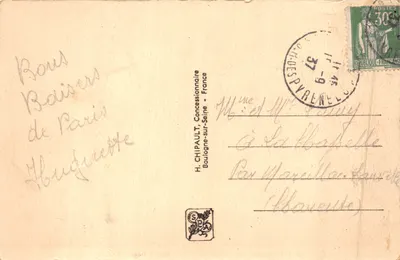 Bons
Baisers
de Paris
Huguette
H. CHIPAULT, Concessionnaire
Boulogne-sur-Seine - France
30
DES PYRENEES
11-9
37
Mme et Mr
à La Chapelle
Par Marcillac
(Mayenne)